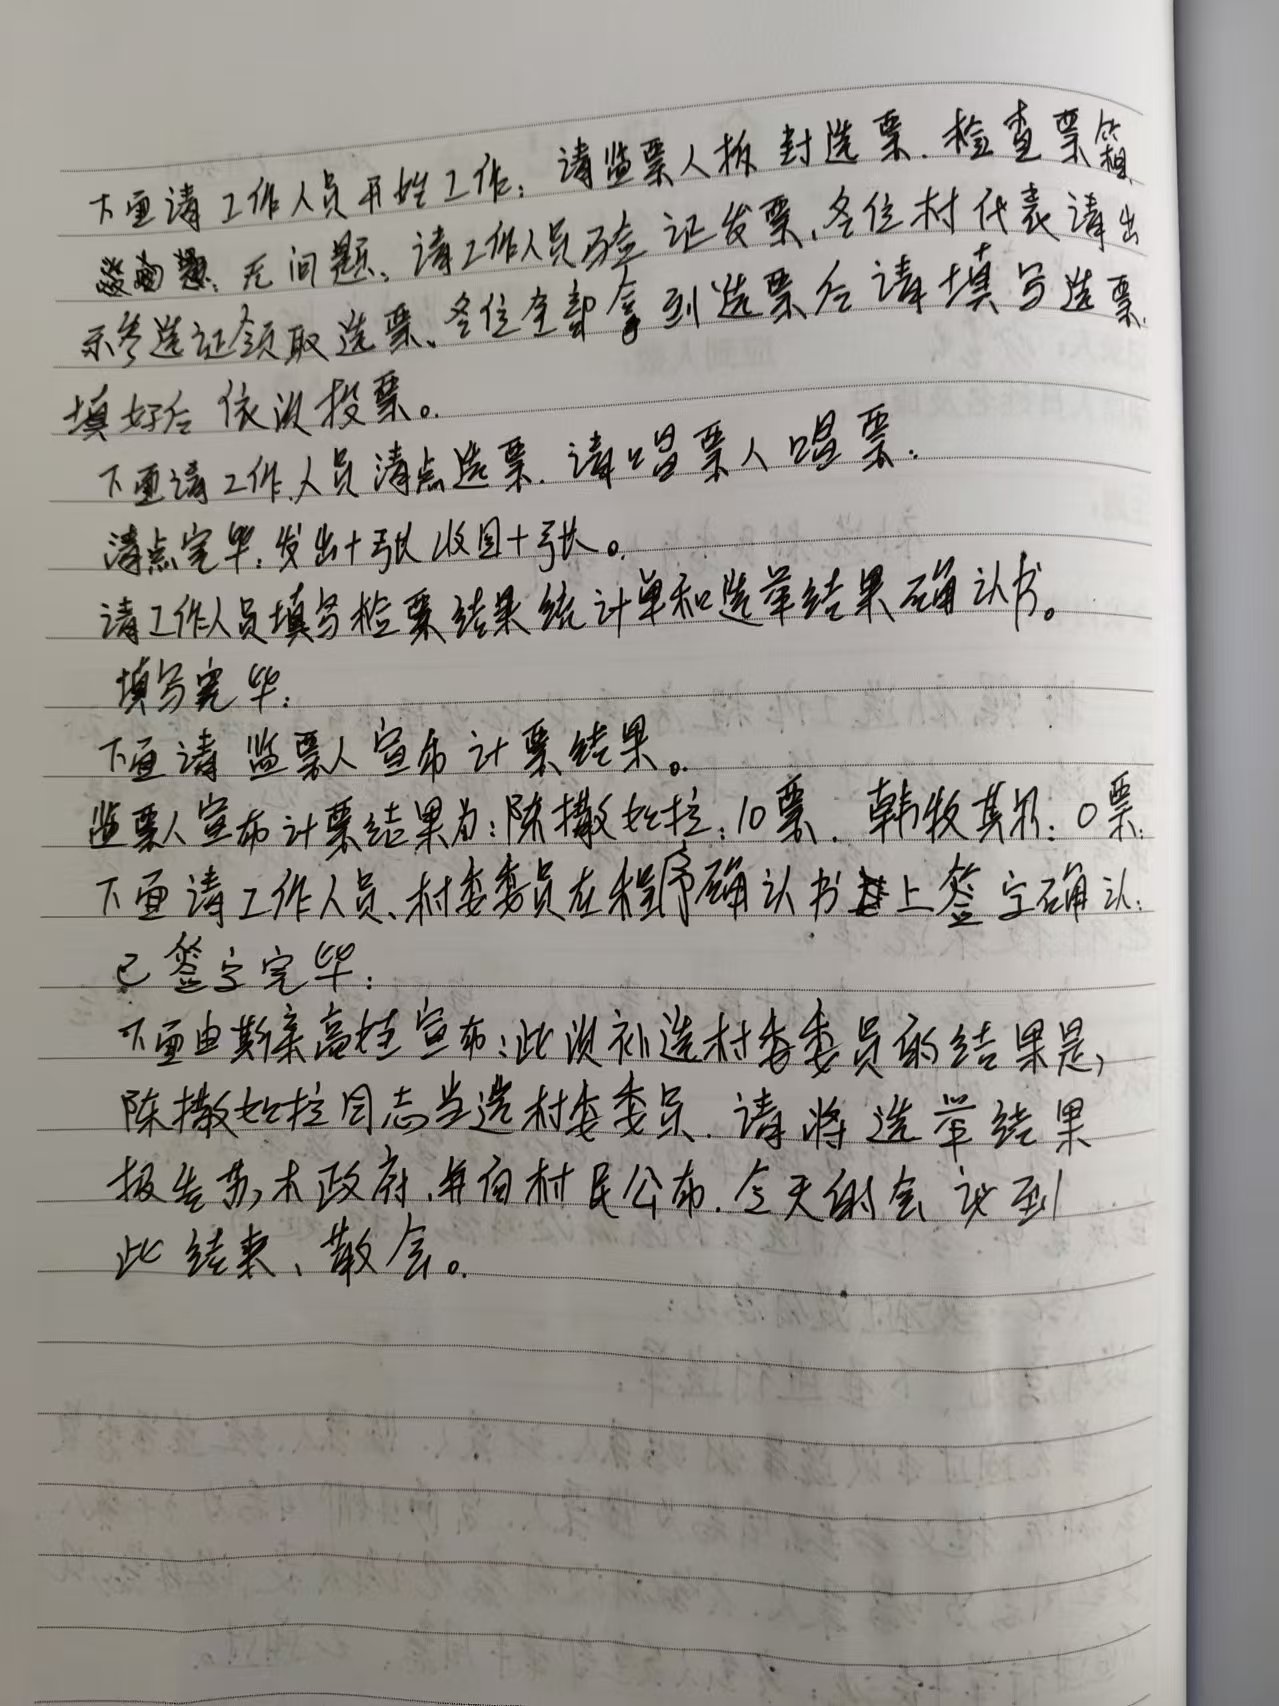 下面请工作人员开始工作：请监票人拆封选票.检查票箱
无问题.请工作人员验证发票.各位村代表请出
示参选证领取选票.各位全部拿到选票后请填写选票.
填好后依次投票。
下面请工作人员清点选票.请唱票人唱票.
清点完毕:发出十张收回十张。
请工作人员填写检票结果统计单和选举结果确认书。
填写完毕:
下面请监票人宣布计票结果。
监票人宣布计票结果为:陈撒如拉:10票.韩牧其尔:0票.
下面请工作人员、村委委员在程序确认书上签字确认.
已签字完毕:
下面由斯琴高娃宣布:此次补选村委委员的结果是,
陈撒如拉同志当选村委委员.请将选举结果
报告苏木政府.并向村民公布.今天的会议到
此结束、散会。